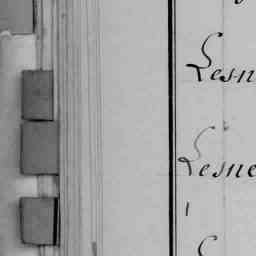 Lesn
Lesne